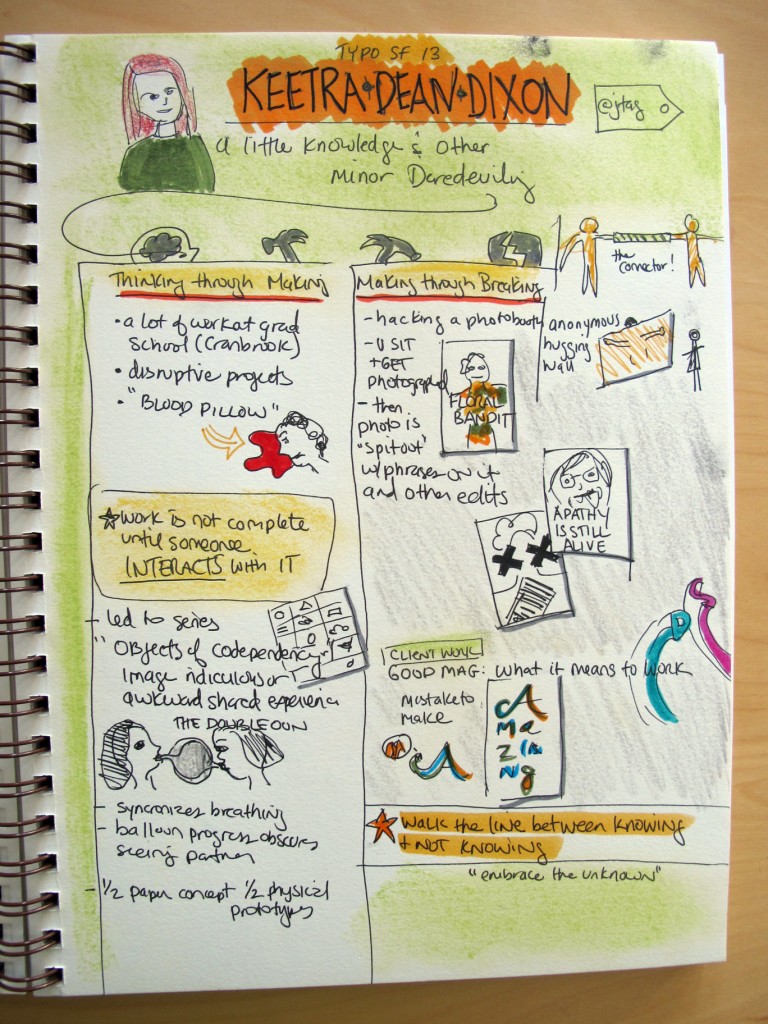 TYPO SF 13
KEETRA•DEAN•DIXON
@jtag
a little knowledge & other
Minor Daredevilry
Thinking through Making
• a lot of work at grad
School (Cranbrook)
• disruptive projects
• "BLOOD PILLOW"
☆ WORK IS not complete
until someone
INTERACTS with IT
- led to series
"Objects of codependency"
Image ridiculous or
awkward shared experience
THE DOUBLEOON
- syncronizes breathing
- balloon progress obscures
seeing partner
- 1/2 paper concept 1/2 physical
prototypes
Making through Breaking
- hacking a photobooth
- U SIT
+ GET
photographed
- then
photo is
"spit out"
w/ phrases on it
and other edits
FLORAL
BANDIT
the connector!
anonymous
hugging
wall
APATHY
IS STILL
ALIVE
CLIENT WORK
GOOD MAG: What it means to work
Mistake to
make
A
Ma
Z IN
Ng
D
S
★ Walk the line between knowing
+ NOT KNOWING
"embrace the unknown"